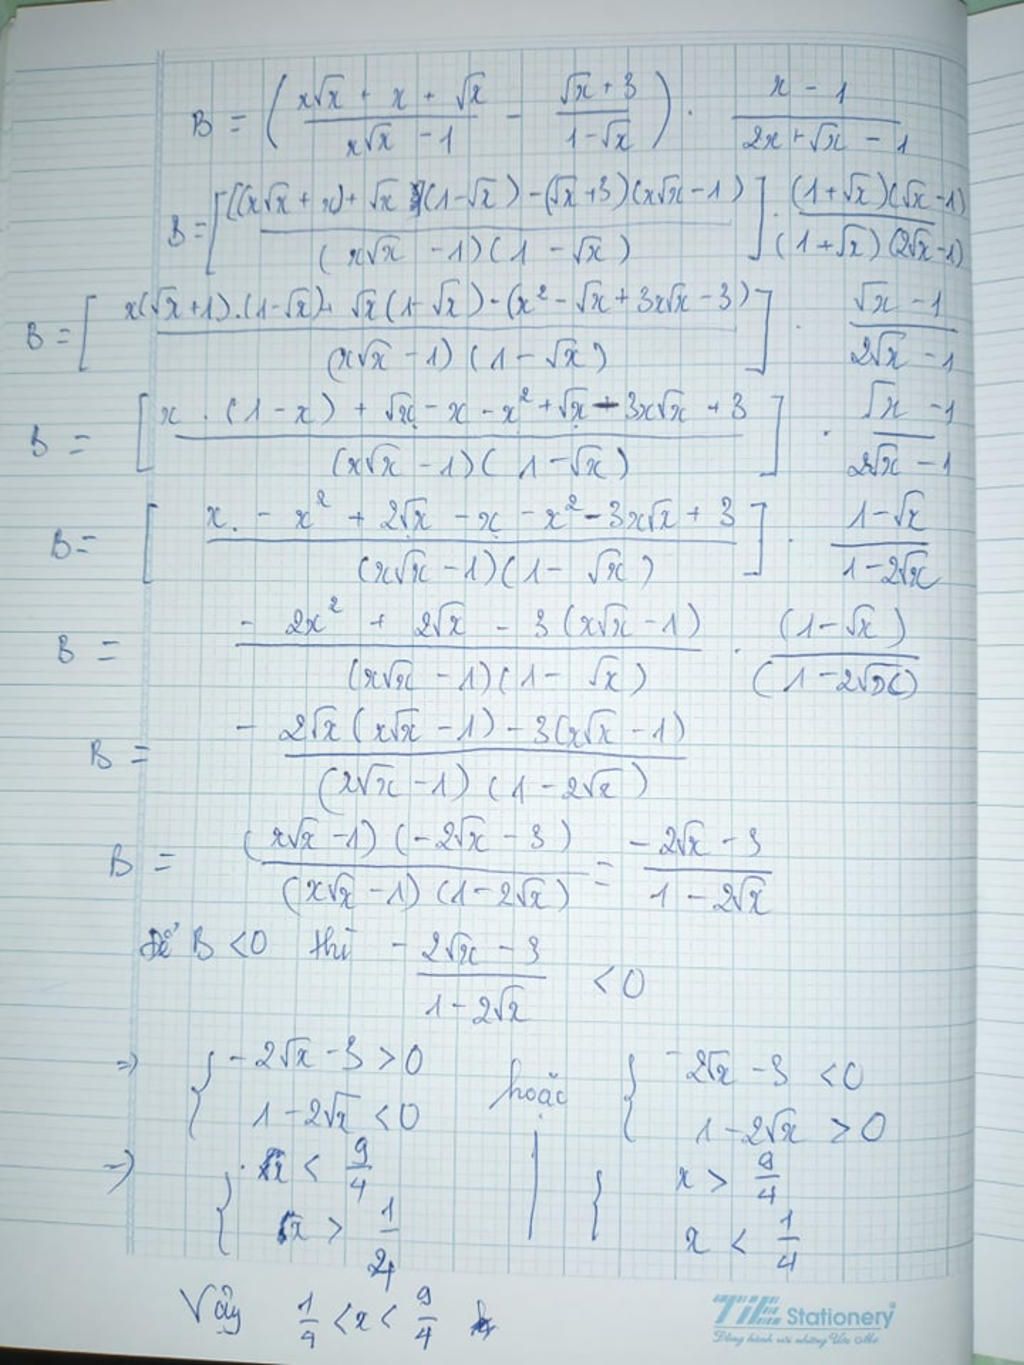 B = ( (x√x + x + √x)/(x√x - 1) - (√x + 3)/(1 - √x) ) . (x - 1)/(2x + √x - 1)
B = [ ([(x√x + x) + √x ](1 - √x) - (√x + 3)(x√x - 1))/((x√x - 1)(1 - √x)) ] . ((1 + √x)(√x - 1))/((1 + √x)(2√x - 1))
B = [ (x(√x + 1).(1 - √x) + √x(1 - √x) - (x² - √x + 3x√x - 3))/((x√x - 1)(1 - √x)) ] . (√x - 1)/(2√x - 1)
B = [ (x . (1 - x) + √x - x - x² + √x - 3x√x + 3)/((x√x - 1)(1 - √x)) ] . (√x - 1)/(2√x - 1)
B = [ (x. - x² + 2√x - x - x² - 3x√x + 3)/((x√x - 1)(1 - √x)) ] . (1 - √x)/(1 - 2√x)
B = (- 2x² + 2√x - 3(x√x - 1))/((x√x - 1)(1 - √x)) . (1 - √x)/(1 - 2√x)
B = (- 2√x(x√x - 1) - 3(x√x - 1))/((x√x - 1)(1 - 2√x))
B = ((x√x - 1)(-2√x - 3))/((x√x - 1)(1 - 2√x)) = (-2√x - 3)/(1 - 2√x)
Để B < 0 thì (-2√x - 3)/(1 - 2√x) < 0
=> { -2√x - 3 > 0 hoặc { -2√x - 3 < 0
1 - 2√x < 0 1 - 2√x > 0
=> { x < 9/4 | { x > 9/4
x > 1/4 x < 1/4
Vậy 1/4 < x < 9/4
TiE Stationery